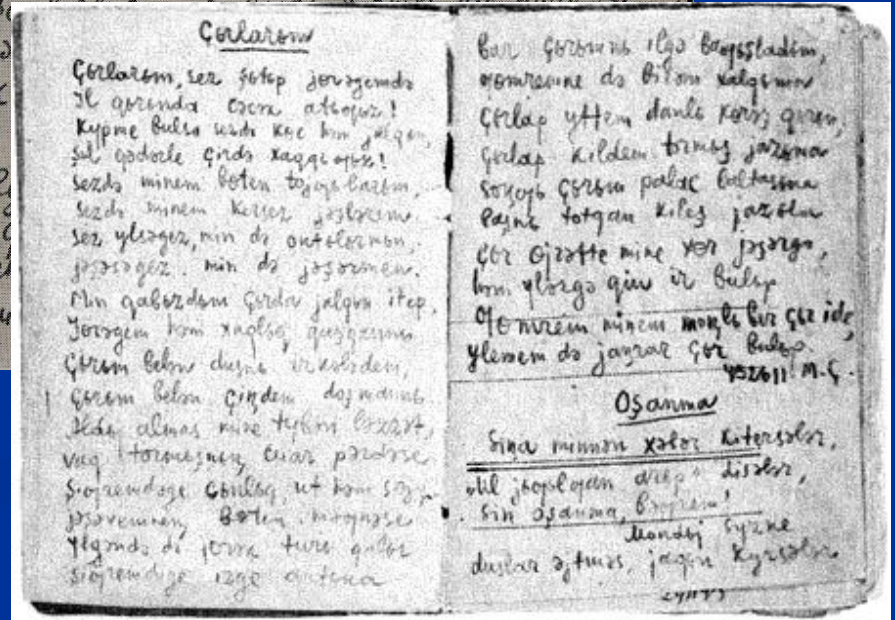 Çьrlarьm
Çьrlarьm, sez şytep jɵrəgemdə
Il qьrьnda cəcək atьgьz!
Kypme bulsa sezdə kɵc həm jalqьn,
Şul qədərle çirdə xaqqьgьz!
Sezdə minem bɵten tojgьlarьm,
Sezdə minem jəşlərem.
Sez ylsəgez, min də onьtьlьrmьn,
jəşəsəgez, min də jəşərmen.
Min qabьzdьm çьrda jalqьn itep
Jɵrəgem həm xaqlьq quşqannь
Çьrьm belən dusnь irkələdem,
Çьrьm belən çiŋdem doşmannь
Alda almas mine tybən ləzzət,
Vaq tormьşnьŋ cuar pərdəse
Şigremdəge cьnlьq, ut həm
jəşəvemneŋ bɵten məgnəse
Ylgəndə də jɵrək turь qalьr
Şigremdəge izge antьna
Bar çьrьmnь ilgə bagьşladьm,
gomremne də birəm xalqьma
Çьrlap yttem danlь kɵrəş qьrьn,
Çьrlap kildem tormьş jazьna
Soŋgь çьrьm palac baltasьna
Başnь totqan kileş jazьla
Çьr ɵjrətte mine xɵr jəşərgə,
həm ylərgə qьju ir bulьp
Gomrem minem moŋlь ber çьr ide,
ylemem də jaŋrar çьr bulьp
M.Ç.
Oşanma
Siŋa minnən xəbər kitersələr,
„Ul jьgьlgan arьp" disələr,
Sin oşanma, bəgrem!
Mondьj syzne
duslar əjtməs, jaqьn kyrsələr